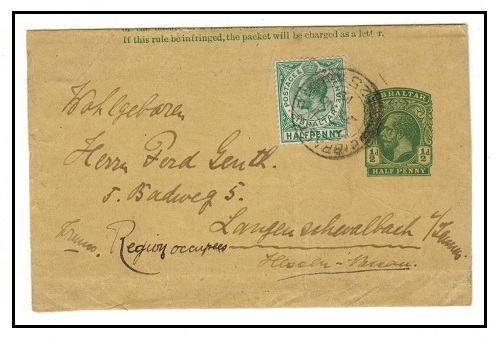 If this rule be infringed, the packet will be charged as a letter.
POSTAGE & REVENUE
GIBRALTAR
HALFPENNY
GIBRALTAR
½d ½d
HALF PENNY
Wohlgeboren
Herrn Ferd. Genth.
5. Badweg 5.
Langenschwalbach i/Taunus
Region occupée
Hessen-Nassau.